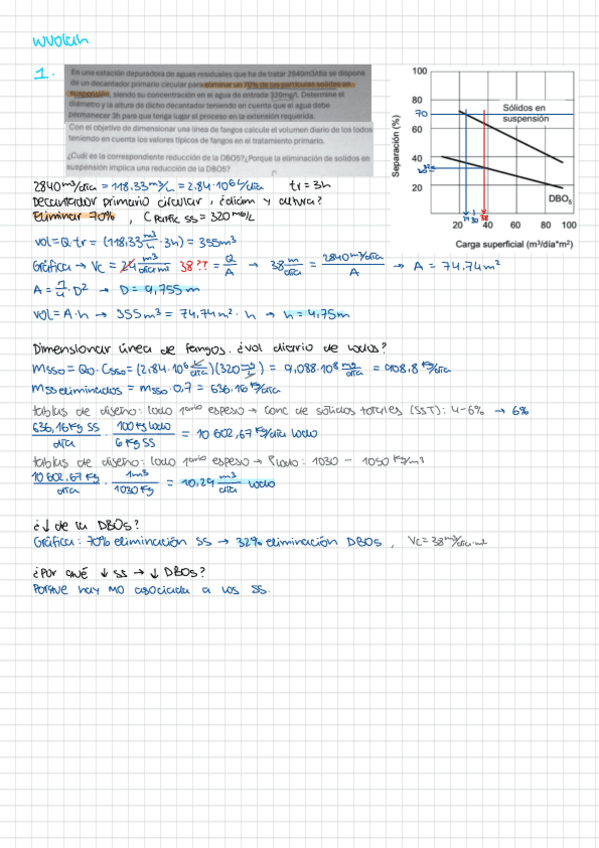 wuolah
1.
En una estación depuradora de aguas residuales que ha de tratar 2840m3/día se dispone
de un decantador primario circular para eliminar un 70% de las partículas solidas en
suspensión, siendo su concentración en el agua de entrada 320mg/l. Determine el
diámetro y la altura de dicho decantador teniendo en cuenta que el agua debe
permanecer 3h para que tenga lugar el proceso en la extensión requerida.
Con el objetivo de dimensionar una línea de fangos calcule el volumen diario de los lodos
teniendo en cuenta los valores típicos de fangos en el tratamiento primario.
¿Cuál es la correspondiente reducción de la DBO5? ¿Porque la eliminación de solidos en
suspensión implica una reducción de la DBO5?
100
80
70
60
40
20
Separación (%)
Sólidos en
suspensión
DBO5
20 40 60 80 100
24 30 38
Carga superficial (m³/día*m²)
2840 m³/día = 118,33 m³/h = 2,84·10⁶ L/día tr = 3h
Decantador primario circular, ¿diám y altura?
Eliminar 70%, C partíc SS = 320 mg/L
Vol = Q·tr = (118,33 m³/h · 3h) = 355 m³
Gráfica → Vc = 24 m³/día·m² 38?? = Q/A → 38 m/día = 2840 m³/día / A → A = 74,74 m²
A = π/4 · D² → D = 9,755 m
Vol = A·h → 355 m³ = 74,74 m² · h → h = 4,75 m
Dimensionar línea de fangos. ¿vol diario de lodos?
Msso = Qo·Csso = (2,84·10⁶ L/día)(320 mg/L) = 9,088·10⁸ mg/día = 908,8 kg/día
Mss eliminados = Msso·0,7 = 636,16 kg/día
tablas de diseño: lodo 1ario espeso → conc de sólidos totales (SST): 4-6% → 6%
636,16 kg SS/día · 100 kg lodo/6 kg SS = 10 602,67 kg/día lodo
tablas de diseño: lodo 1ario espeso → ρlodo: 1030 - 1050 kg/m³
10 602,67 kg/día · 1 m³/1030 kg = 10,29 m³/día lodo
¿↓ de la DBO5?
Gráfica: 70% eliminación SS → 32% eliminación DBO5, Vc = 38 m³/día·m²
¿Por qué ↓ SS → ↓ DBO5?
Porque hay MO asociada a los SS.